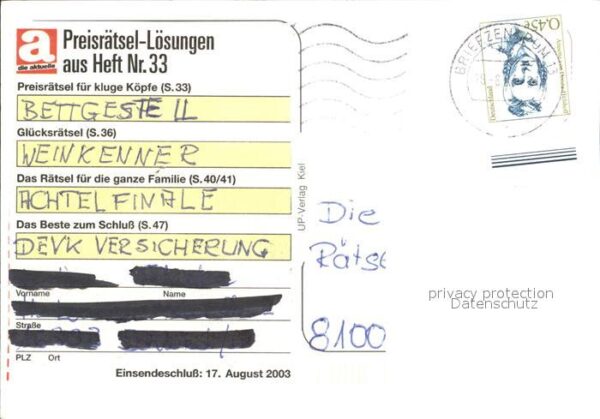 a
die aktuelle
Preisrätsel-Lösungen
aus Heft Nr. 33
Preisrätsel für kluge Köpfe (S. 33)
BETTGESTELL
Glücksrätsel (S. 36)
WEINKENNER
Das Rätsel für die ganze Familie (S. 40/41)
ACHTELFINALE
Das Beste zum Schluß (S. 47)
DEVK VERSICHERUNG
Vorname Name
Straße
PLZ Ort
Einsendeschluß: 17. August 2003
UP-Verlag Kiel
BRIEFZENTRUM 13
0,45€
Deutschland
Die
Rätse
8100
privacy protection
Datenschutz